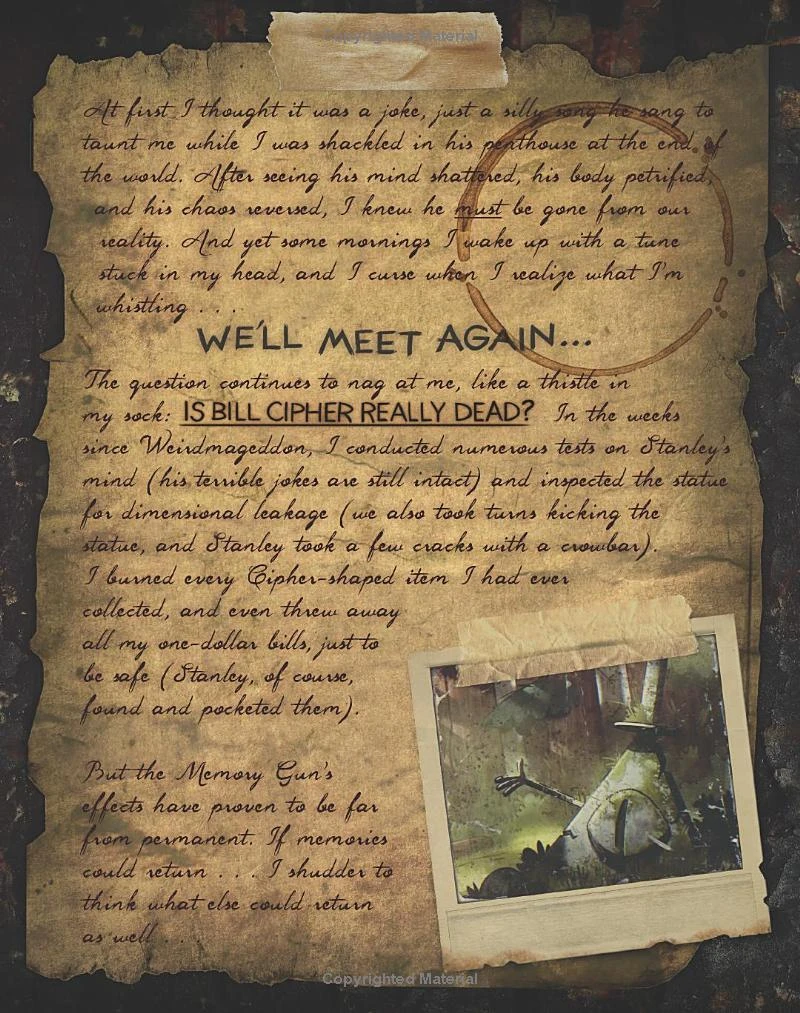 Copyrighted Material
At first I thought it was a joke, just a silly song he sang to
taunt me while I was shackled in his penthouse at the end of
the world. After seeing his mind shattered, his body petrified,
and his chaos reversed, I knew he must be gone from our
reality. And yet some mornings I wake up with a tune
stuck in my head, and I curse when I realize what I'm
whistling . . .
WE'LL MEET AGAIN...
The question continues to nag at me, like a thistle in
my sock: IS BILL CIPHER REALLY DEAD? In the weeks
since Weirdmageddon, I conducted numerous tests on Stanley's
mind (his terrible jokes are still intact) and inspected the statue
for dimensional leakage (we also took turns kicking the
statue, and Stanley took a few cracks with a crowbar).
I burned every Cipher-shaped item I had ever
collected, and even threw away
all my one-dollar bills, just to
be safe (Stanley, of course,
found and pocketed them).
But the Memory Gun's
effects have proven to be far
from permanent. If memories
could return . . . I shudder to
think what else could return
as well . . .
Copyrighted Material